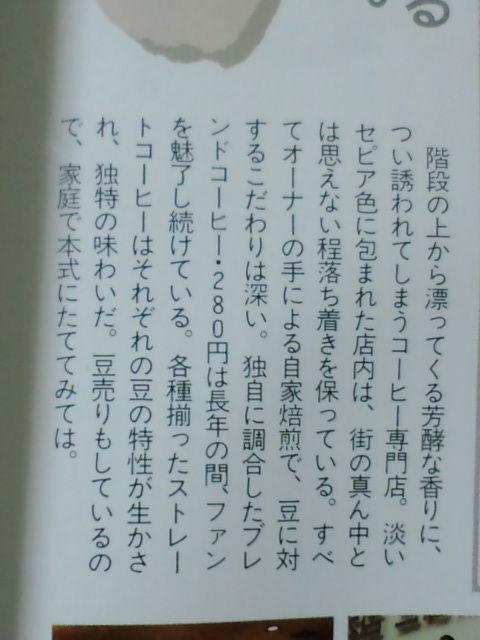 る
階段の上から漂ってくる芳酵な香りに、
つい誘われてしまうコーヒー専門店。淡い
セピア色に包まれた店内は、街の真ん中と
は思えない程落ち着きを保っている。すべ
てオーナーの手による自家焙煎で、豆に対
するこだわりは深い。独自に調合したブレ
ンドコーヒー・280円は長年の間、ファン
を魅了し続けている。各種揃ったストレー
トコーヒーはそれぞれの豆の特性が生かさ
れ、独特の味わいだ。豆売りもしているの
で、家庭で本式にたててみては。